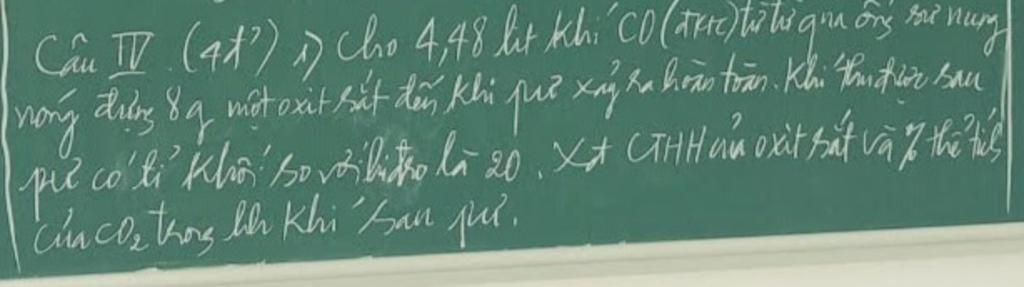 Câu IV (4đ) 1) Cho 4,48 lit khí CO (đktc) từ từ qua ống sứ nung
nóng đựng 8g một oxit sắt đến khi pư xảy ra hoàn toàn. Khí thu được sau
pư có tỉ khối so với hiđro là 20. Xđ CTHH của oxit sắt và % thể tích
của CO2 trong hh khí sau pư.